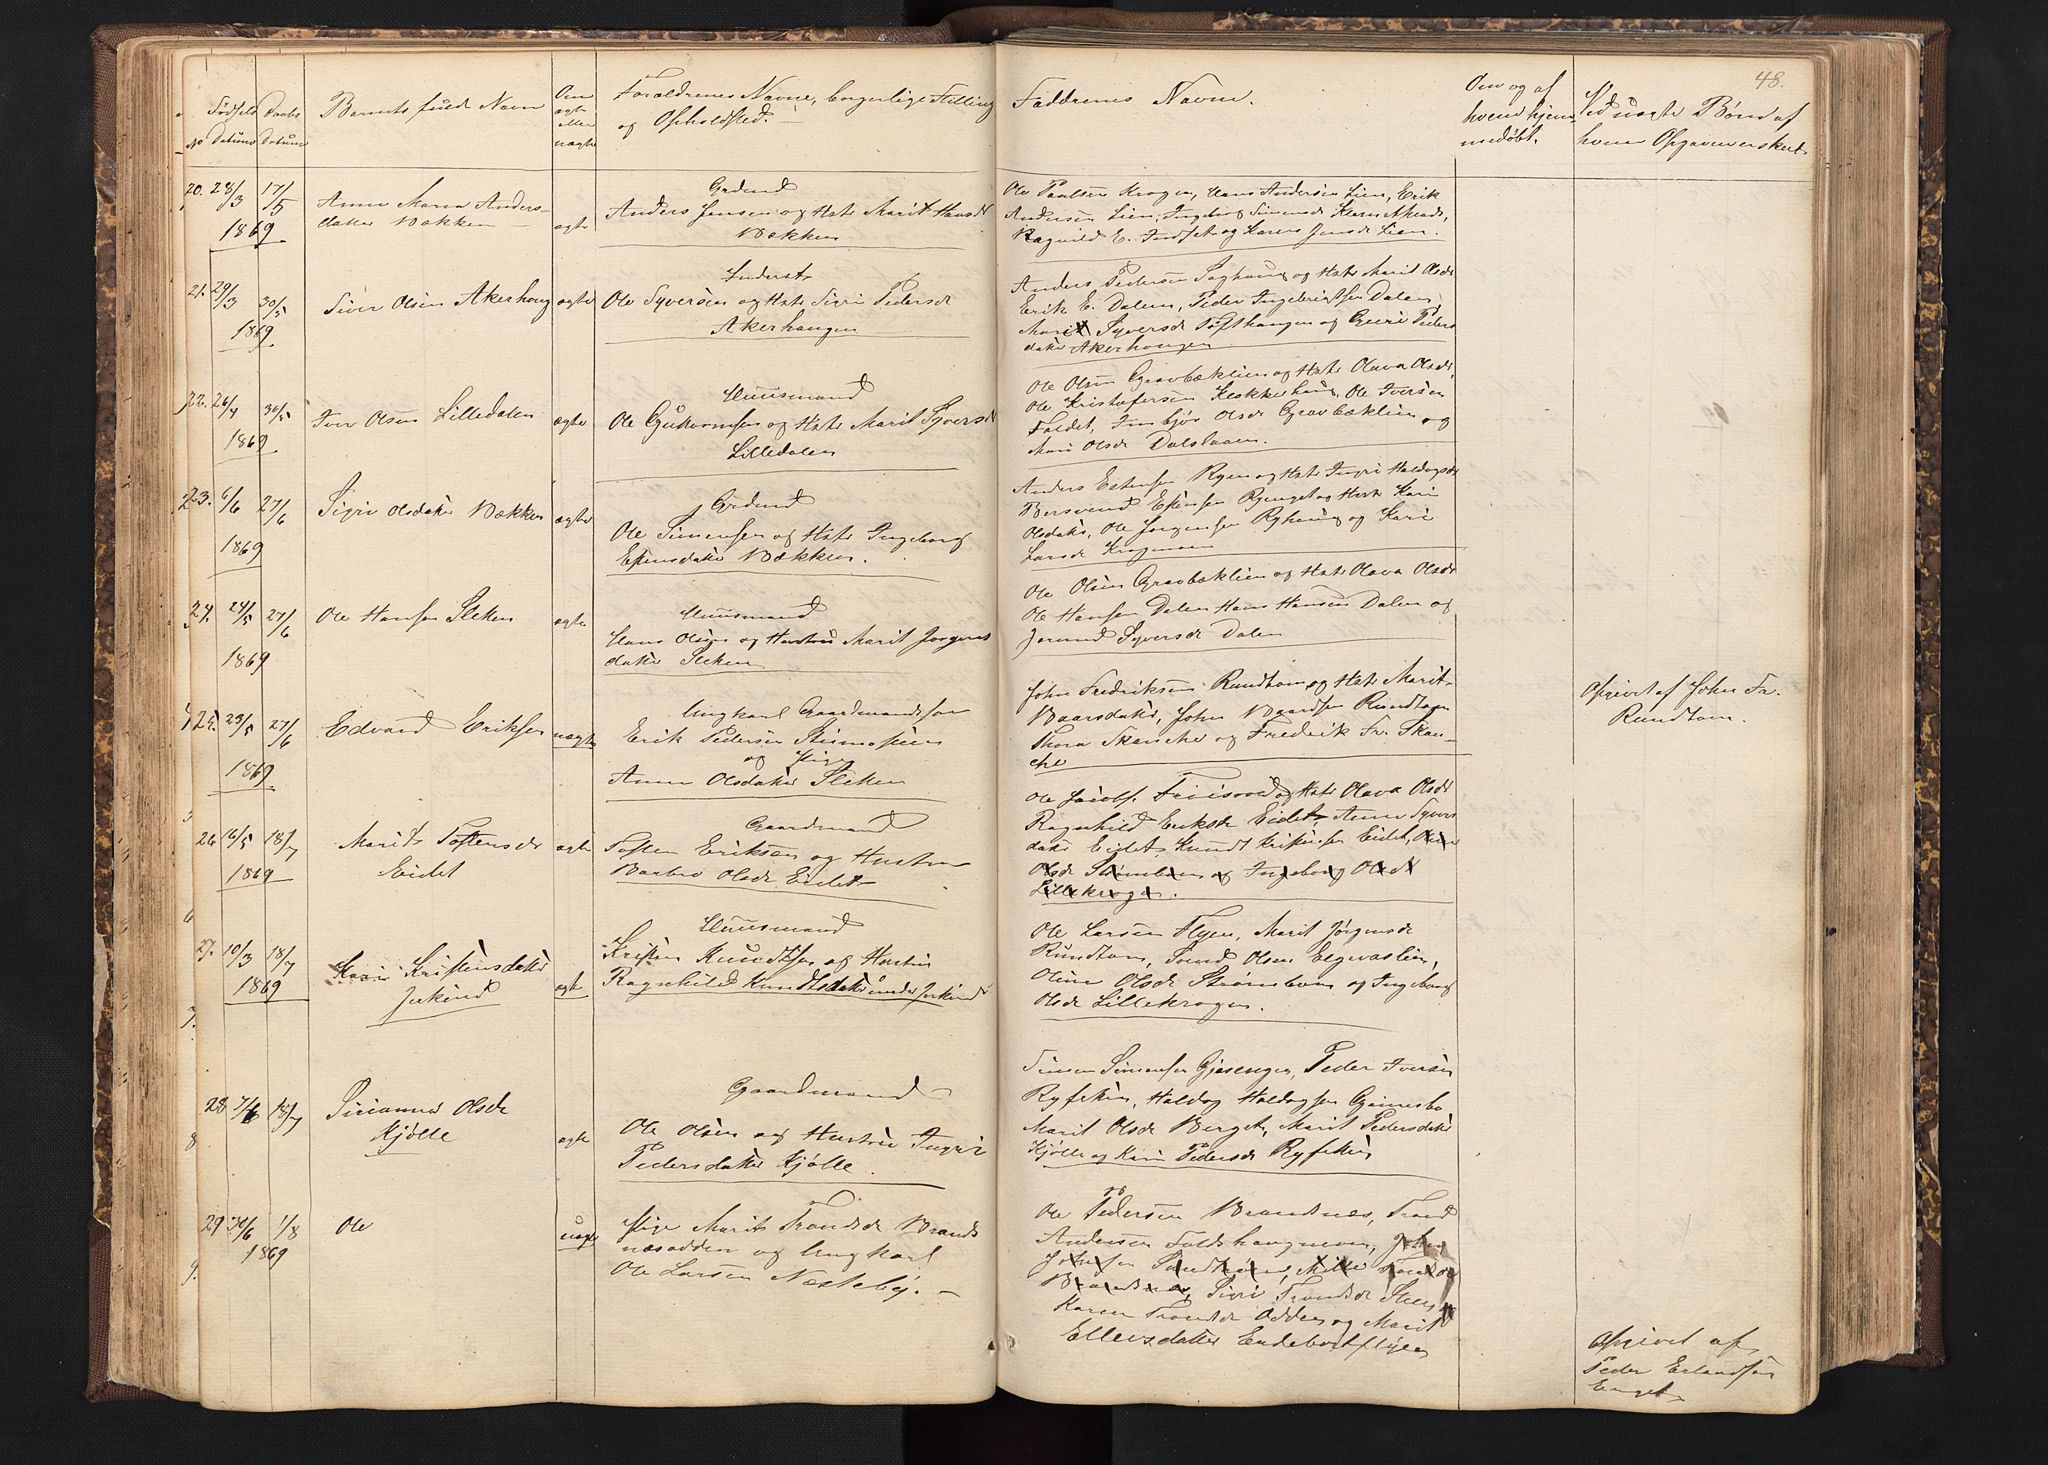 48.
No
Fødsels Datum
Daabs Datum
Barnets fulde Navn
Om ægte eller uægte
Forældrenes Navne, borgerlige Stilling
og Opholdsted.
Faddrenes Navne.
Om og af
hvem hjem-
medøbt.
Ved uægte Børn af
hvem Opgaven er skeet
20. 28/3 17/5
1869
Anne Marea Anders-
datter Bækken
ægte
Grdmd
Anders Jensen og Hstr Marit Hansd
Bækken
Ole Paulsen Krogen, Hans Andersen Lien, Erik
Andersen Lien, Ingeborg Simensd
Ragnild E. Indset og Karen Jensd Lien.
21. 29/3 30/5
1869
Siver Olsen Akerhoug
ægte
Inderst
Ole Syversen og Hstr Sigri Pedersd
Akerhaugen
Anders Pedersen Saghaug og Hstr Marit Olsd
Erik E. Dalen, Peder Ingebrigtsen Dalen,
Marit Syversd Tofthaugen og Guri Peders
datter Akerhougen
22. 26/4 30/5
1869
Iver Olsen Lilledalen
ægte
Huusmand
Ole Guttormsen og Hstr Marit Syversd
Lilledalen
Ole Olsen Gravbæklien og Hstr Olava Olsd,
Ole Kristofersen Klokkerhaug, Ole Iversen
Faldet, Imbjør Olsd Gravbæklien og
Mari Olsd Dalslaaen.
23. 6/6 27/6
1869
Sigri Olsdatter Bækken
ægte
Grdmd
Ole Simensen og Hstr Ingeborg
Estensdatter Bækken.
Anders Estensen Ryen og Hstr Ingri Haldogsd
Bersvend Estensen Ryenget og Hstr Kari
Olsdatter, Ole Jorgensen Ryhaug og Kari
Larsd Krogmoen
24. 24/5 27/6
1869
Ole Hansen Sleken
ægte
Huusmand
Hans Olsen og Hustru Marit Jorgens
datter Sleken
Ole Olsen Gravbæklien og Hstr Olava Olsd
Ole Hansen Dalen Hans Hansen Dalen og
Jorund Syversd Dalen
25. 23/5 27/6
1869
Edvard Eriksen
uægte
Ungkarl Gaardmandssøn
Erik Pedersen Steimosien
og Pige
Anne Olsdatter Sleken
John Fredriksen Rundtom og Hstr Marit
Baarsdatter, John Baardsen Rundtom
Thora Skancke og Fredrik Fr. Skan-
cke
Opgivet af John Fr.
Rundtom.
26 16/5 18/7
1869
Marit Tostensd
Eidet
ægte
Gaardmand
Tosten Eriksen og Hustru
Barbro Olsd Eidet
Ole Jacobs. Friisvold og Hstr Olava Olsd
Ragnhild Eriksd Eidet, Anne Syvers
datter Eidet, Knudt Kristensen Eidet, Oline
Olsd Strømboen og Ingeborg Olsd
Lillekrogen.
27. 10/3 18/7
1869
Kari Kristensdatter
Jerkind
ægte
Huusmand
Kristen Knudtsen og Hustru
Ragnhild Knudtsdatter under Jerkind
Ole Larsen Flyen, Marit Jørgensd
Rundtom, Svend Olsen Eegvaslien,
Oline Olsd Strømboen og Ingeborg
Olsd Lillekrogen.
28 7/6 18/7
Sirianna Olsdr
Kjølle
ægte
Gaardmand
Ole Olsen og Hustru Ingri
Pedersdatter Kjølle.
Simen Simensen Gjesengen, Peder Iversen
Ryfetten, Haldog Haldogsen Grimsbo
Marit Olsd Berget, Marit Pedersdatter
Kjølle og Kari Pedersd Ryfetten
29 30/6 1/8
1869
Ole
uægte
Pige Marit Trondsd Brands
næsodden og Ungkarl
Ole Larsen Næsteby.
Ole Pedersen Brandsnæs, Trond
Andersen Foldshaugmoen, John
Johnsen Sandtrøen, Mille Trondsd
Brandsnæs, Sigri Trondsd Steen
Karen Trondsd Odden og Marit
Ellevsdatter Endebostflyen
Opgivet af
Peder Erlandsen
Enget